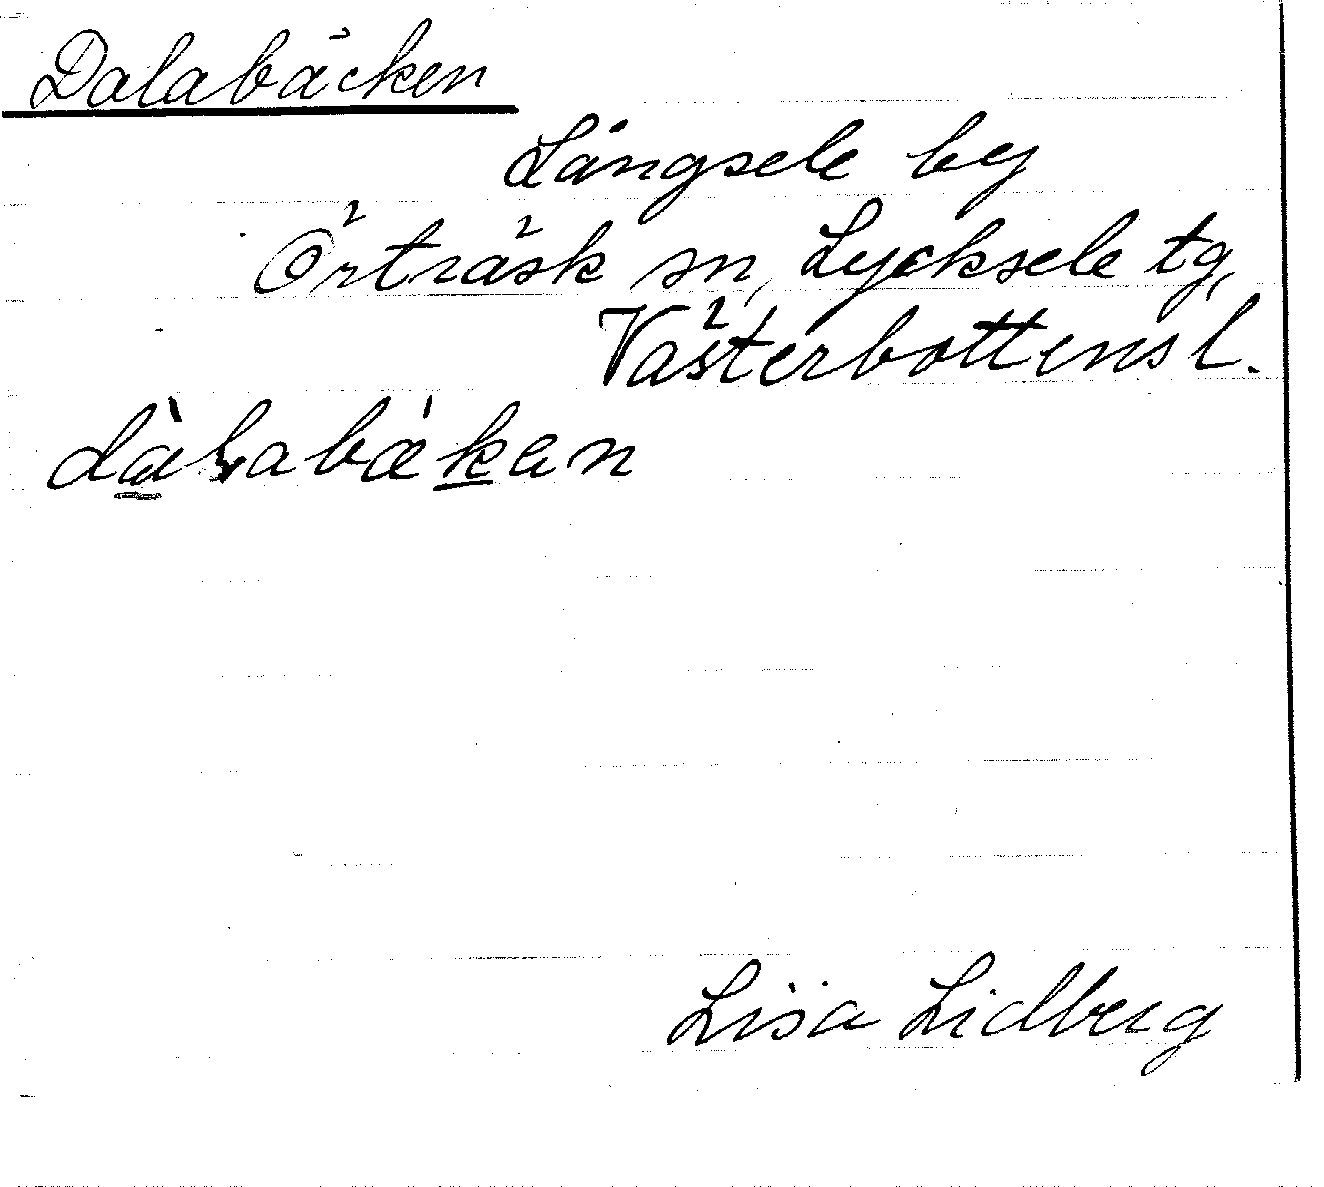 Dalabäcken
Långsele by
Örträsk sn, Lycksele tg,
Västerbottens l.
dàlabæken
Lisa Lidberg